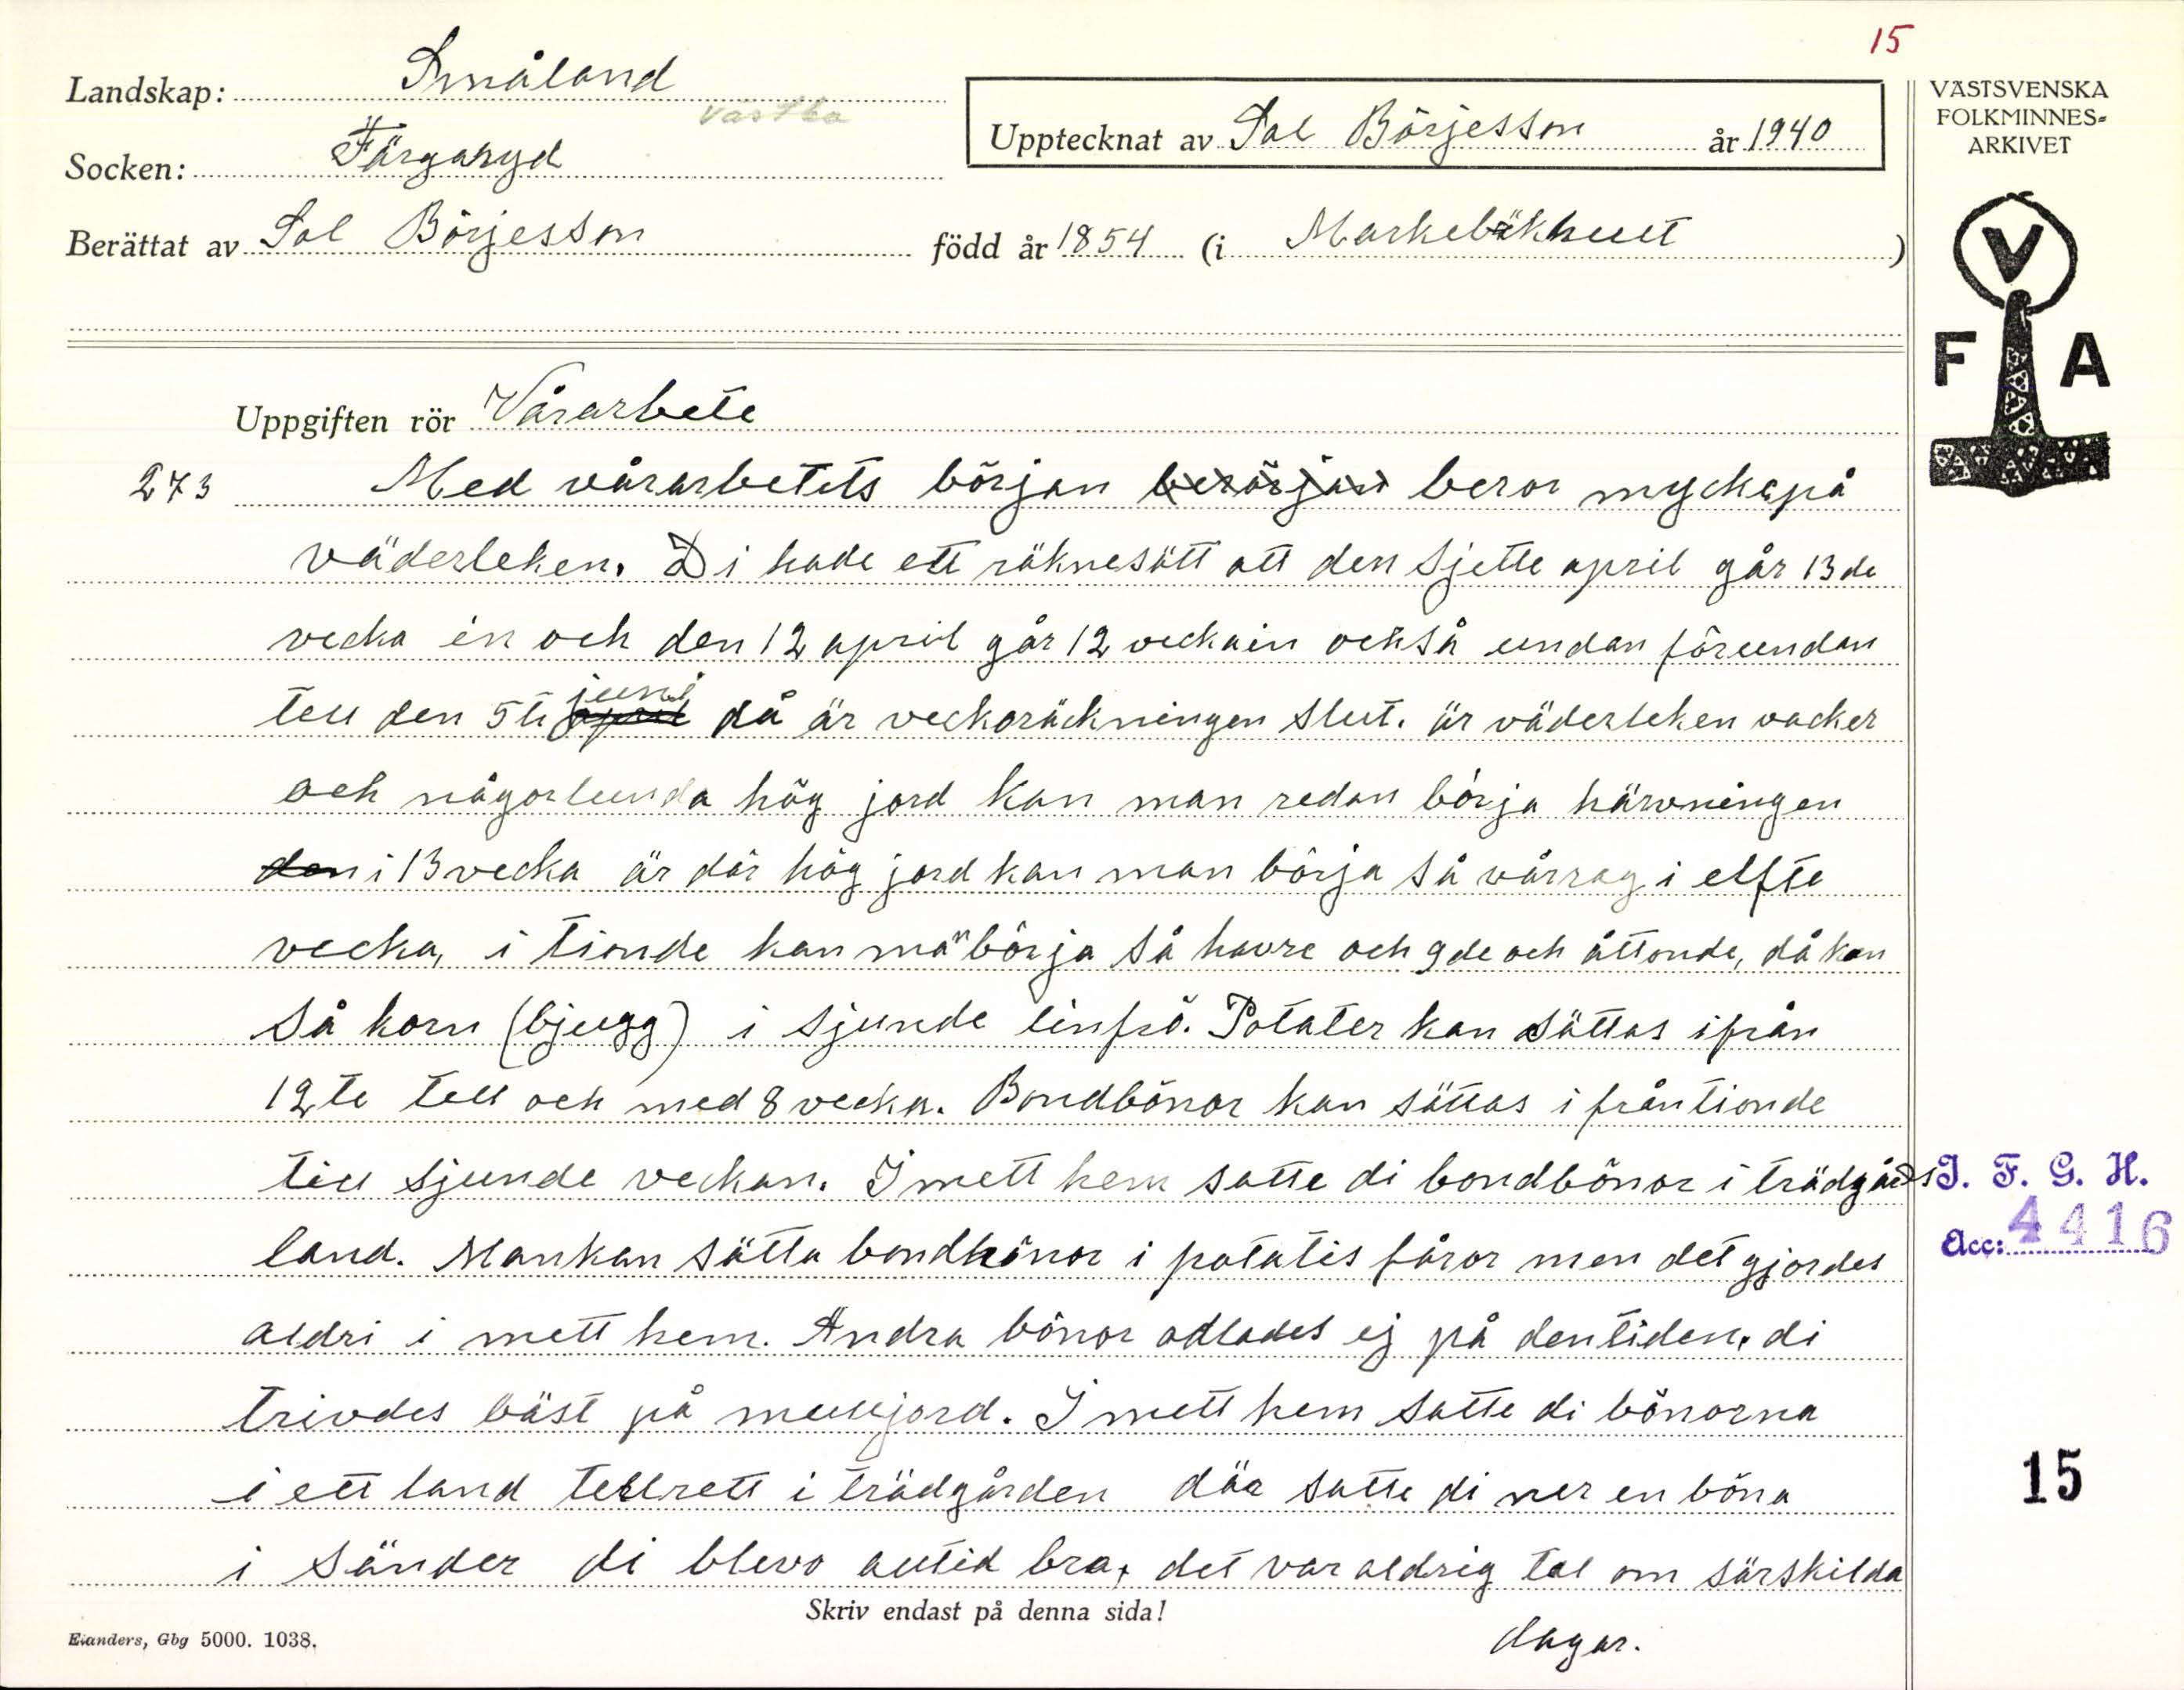 15
Landskap: Småland
Västbo
Socken: Färgaryd
Upptecknat av Sal Börjesson år 1940
Berättat av Sal Börjesson född år 1854 (i )
VÄSTSVENSKA
FOLKMINNES-
ARKIVET
V
F A
Uppgiften rör Vårarbete
273 Med vårarbetets början beror mycke på
väderleken. Di hade ett räknesätt att den sjette april går 13de
vecka in och den 12 april går 12 vecka in och så undan för undan
tell den 5te juni då är veckoräckningen slut. är väderleken vacker
och någorlunda hög jord kan man redan börja härvningen
den i 13 vecka är där hög jord kan man börja så vårrag i elfte
vecka, i tionde kan man börja så havre och 9de och åttonde, då kan
så korn (bjugg) i sjunde linfrö. Potater kan sättas ifrån
12te tell och med 8 vecka. Bondbönor kan sättas ifrån tionde
till sjunde veckan. I mett hem satte di bondbönor i trädgårds
land. Man kan sätta bondbönor i potatis fåror men det gjordes
aldri i mett hem. Andra bönor odlades ej på den tiden. di
trivdes bäst på mulljord. I mett hem satte di bönorna
i ett land tellrett i trädgården där satte di ner en böna
i sänder di blevo alltid bra, det var aldrig tal om särskilda
dagar.
Skriv endast på denna sida!
Elanders, Gbg 5000. 1038.
I. F. G. H.
Acc: 4416
15